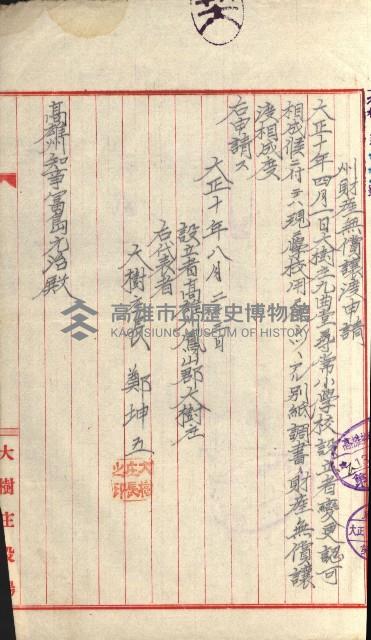 州財産無償讓渡申請
大正十年四月一日大樹庄九曲堂尋常小學校設立者變更認可
相成候ニ付テハ現ニ學校用ニ供シツヽアル別紙調書ノ財産無償讓
渡相成度
右申請ス
大正十年八月二十三日
設立者高雄州鳳山郡大樹庄
右代表者
大樹庄長 鄭坤五
大樹庄長之印
高雄州知事富島元治殿
大樹庄役場
高雄市立歷史博物館
KAOHSIUNG MUSEUM OF HISTORY